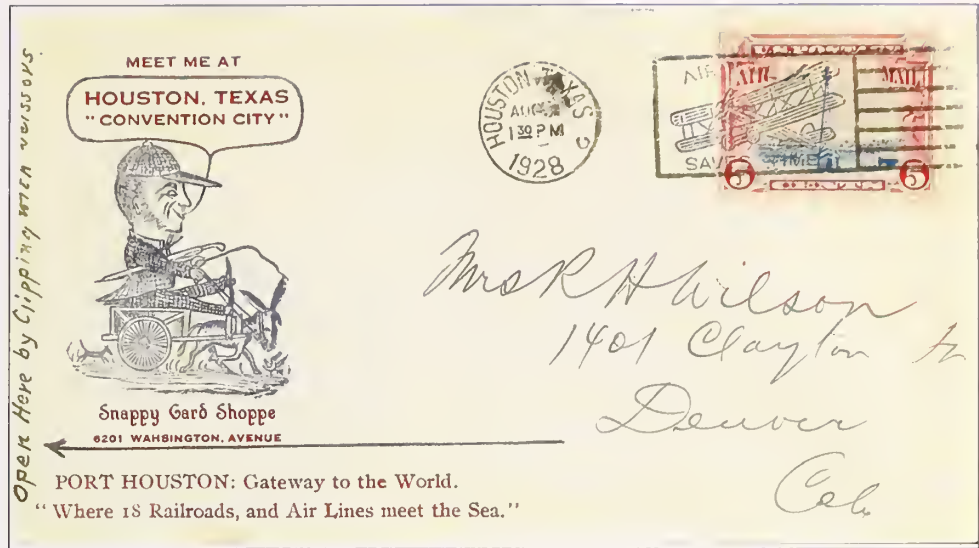 Open Here by Clipping with scissors
MEET ME AT
HOUSTON, TEXAS
"CONVENTION CITY"
Snappy Card Shoppe
6201 WAHSINGTON, AVENUE
PORT HOUSTON: Gateway to the World.
"Where 18 Railroads, and Air Lines meet the Sea."
HOUSTON, TEXAS
AUG
1 30 PM
1928
AIR
SAVES TIME
AIR MAIL
5 5
Mrs R H Wilson
1401 Clayton
Denver
Colo